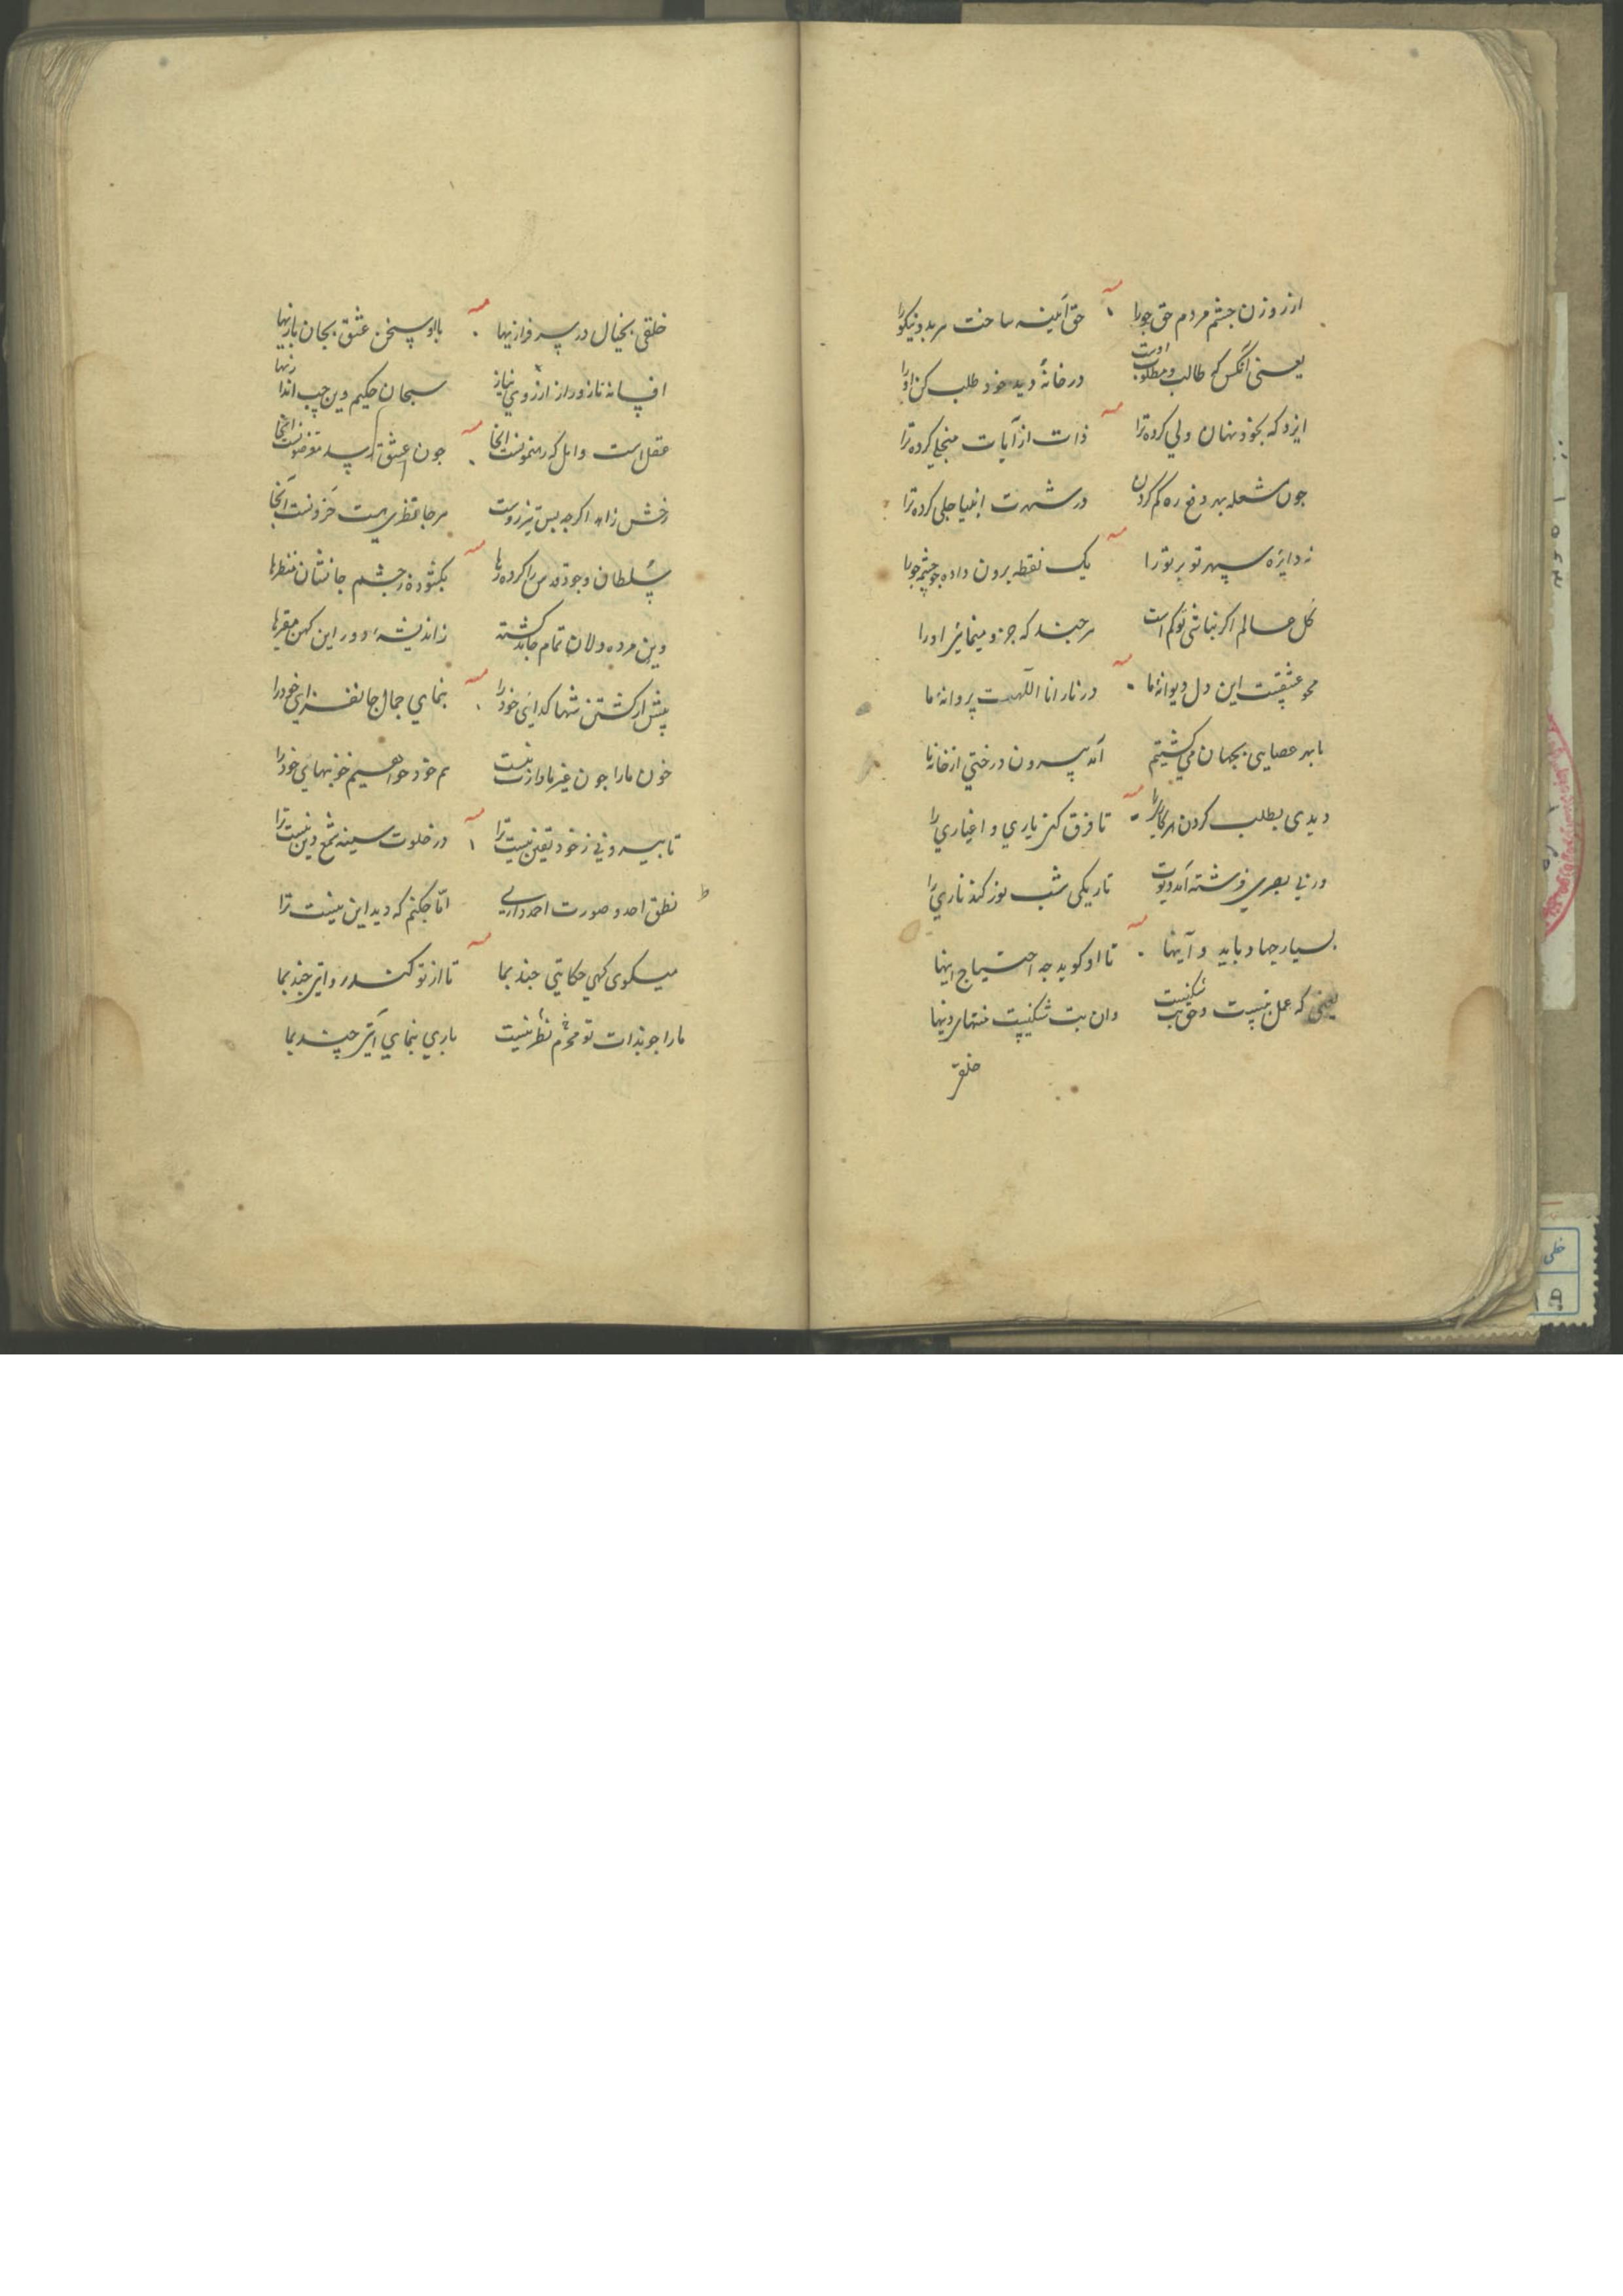 از روزن چشم مردم حق جو را حق آینه ساخت هر بد و نیکو را
یعنی آنکس که طالب و مطلوب اوست در خانهٔ دید خود طلب کن او را
ایزد که بخود نهان ولی کرده ترا ذات از آیات منجلی کرده ترا
چون شعله بهر دفع ره کم کردن در شهرت انبیا جلی کرده ترا
نه دایره سپهر تو بر تو را یک نقطه برون داده جو چشم جویا
کل عالم اکر نباشی تو کم است هرچند که جزو مینمائی او را
محو عشقیست این دل دیوانهٔ ما در نار انا اللهست پروانهٔ ما
ما بهر عصایی بجهان می کشتیم آمد بیرون درختی از خانهٔ ما
دیدی بطلب کردن هر کاری را تا فرق کنی یاری و اغیاری را
ور نی بصری فرشته آمد دیوت تاریکی شب نور کند ناری را
بسیار جهاد باید و آیینها تا او کوید جه احتیاج اینها
یعنی که عمل نیست و حق بت شکنیست وان بت شکنیست منتهای دینها
خلقی
خلقی بخیال در سرفرازیها با او سخن عشق بجان بازیها
افسانه ناز و راز از روی نیاز سبحان حکیم وین چپ اندازیها
عقل است و ابل که رهنمونست انجا چون عشق رسد
رخش زاهد اکرچه بس تیزروست هرجا خطری هست حرونست آنجا
سلطان وجود قدس را کرده رها بکشوده ز چشم جانشان منظرها
وین مرده دلان تمام جامد کشته ز اندیشهٔ دور این کهن مقبرها
پیش از کشتن شها کدائی خود را بنمای جمال جانفزای خود را
خون ما را چون غیر ما وارث نیست هم خود خواهیم خونبهای خود را
تا بیرونی ز خود یقین نیست ترا در خلوت سینه شمع دین نیست ترا
نطق احد و صورت احمد داری اما چکنم که دید این نیست ترا
میکوی کهی حکایتی چند بما تا از تو کند رو اثری چند بما
ما را چو بذات تو محرم نظر نیست باری بنمای آیتی چند بما
خطی